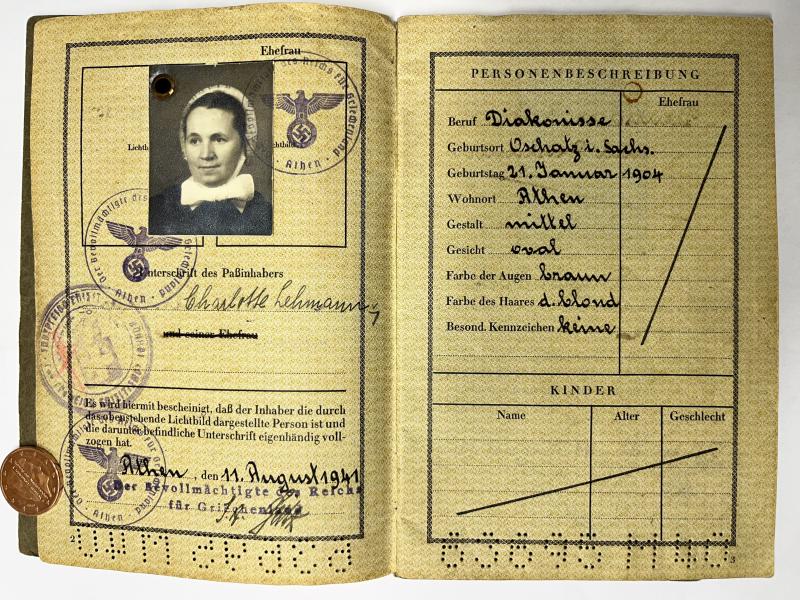 Ehefrau
Unterschrift des Paßinhabers
Charlotte Lehmann
und seiner Ehefrau
Es wird hiermit bescheinigt, daß der Inhaber die durch
das obenstehende Lichtbild dargestellte Person ist und
die darunter befindliche Unterschrift eigenhändig voll-
zogen hat.
Athen, den 11. August 1941
Der Bevollmächtigte des Reichs
für Griechenland
2
PERSONENBESCHREIBUNG
Ehefrau
Beruf Diakonisse
Geburtsort Oschatz i. Sachs.
Geburtstag 21. Januar 1904
Wohnort Athen
Gestalt mittel
Gesicht oval
Farbe der Augen braun
Farbe des Haares d. blond
Besond. Kennzeichen keine
KINDER
Name Alter Geschlecht
3